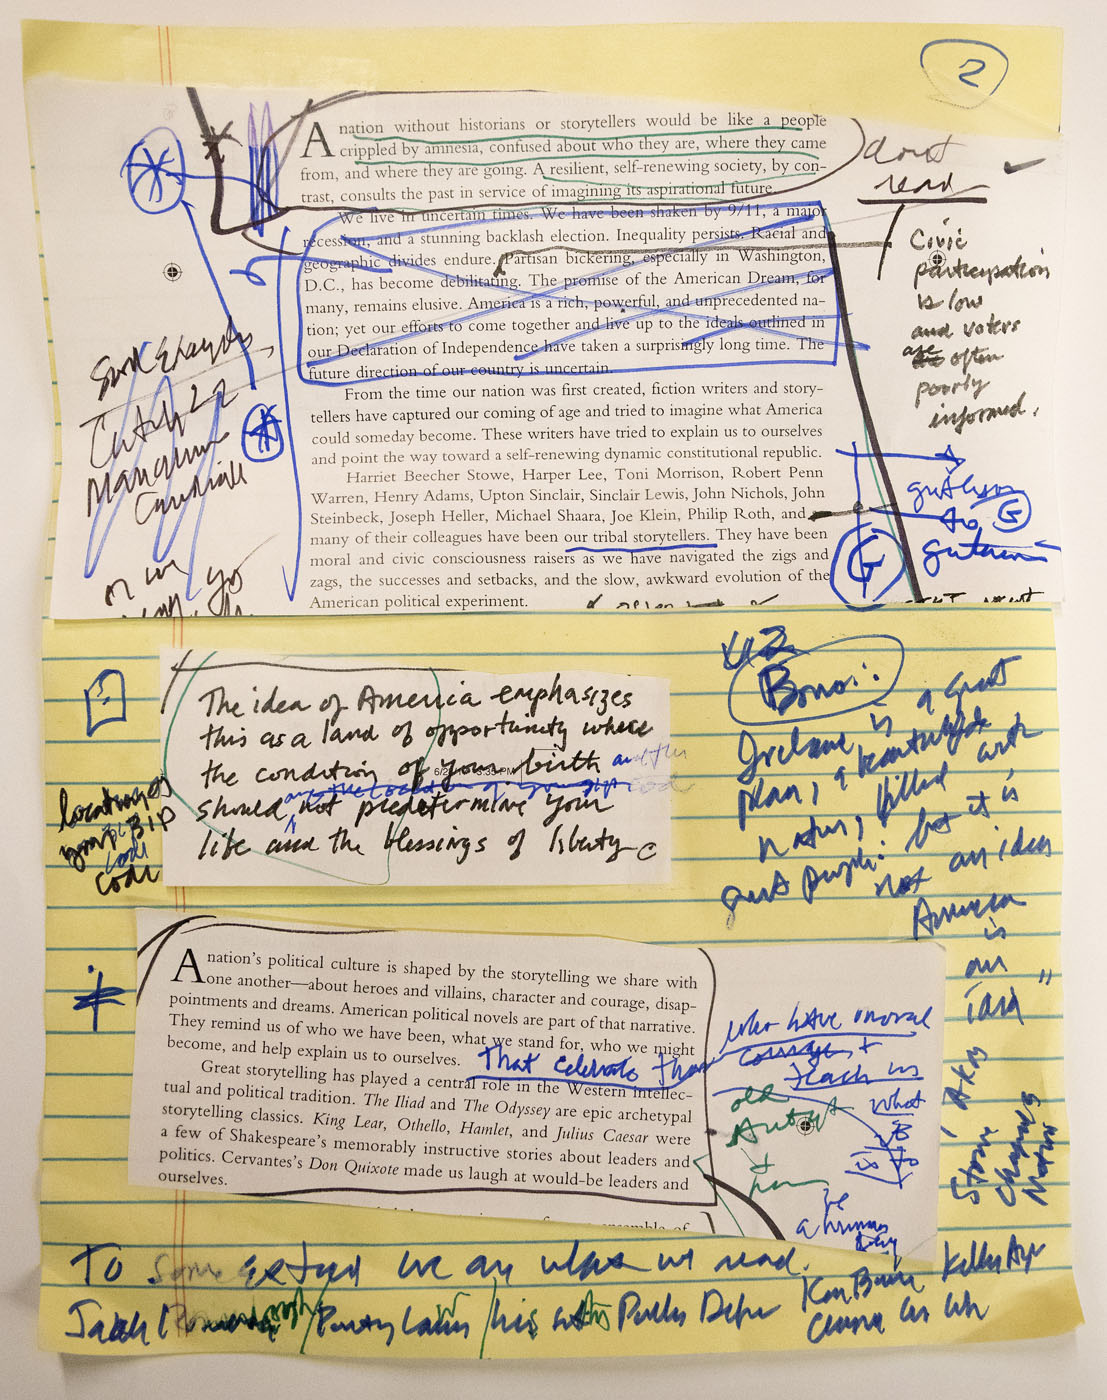 2
A nation without historians or storytellers would be like a people
crippled by amnesia, confused about who they are, where they came
from, and where they are going. A resilient, self-renewing society, by con-
trast, consults the past in service of imagining its aspirational future.
We live in uncertain times. We have been shaken by 9/11, a major
recession, and a stunning backlash election. Inequality persists. Racial and
geographic divides endure. Partisan bickering, especially in Washington,
D.C., has become debilitating. The promise of the American Dream, for
many, remains elusive. America is a rich, powerful, and unprecedented na-
tion; yet our efforts to come together and live up to the ideals outlined in
our Declaration of Independence have taken a surprisingly long time. The
future direction of our country is uncertain.
From the time our nation was first created, fiction writers and story-
tellers have captured our coming of age and tried to imagine what America
could someday become. These writers have tried to explain us to ourselves
and point the way toward a self-renewing dynamic constitutional republic.
Harriet Beecher Stowe, Harper Lee, Toni Morrison, Robert Penn
Warren, Henry Adams, Upton Sinclair, Sinclair Lewis, John Nichols, John
Steinbeck, Joseph Heller, Michael Shaara, Joe Klein, Philip Roth, and
many of their colleagues have been our tribal storytellers. They have been
moral and civic consciousness raisers as we have navigated the zigs and
zags, the successes and setbacks, and the slow, awkward evolution of the
American political experiment.
dont
read
Civic
participation
is low
and voters
are often
poorly
informed.
G
to
G
Catch 22
Manchurian
Candidate
The idea of America emphasizes
this as a land of opportunity where
the condition of your birth and the
should not predetermine your
life and the blessings of liberty
location of
your ZIP
code
code
Bono:
Ireland is a great
place, a beautiful
nation, filled with
great people: but it is
not an idea
America
is
an
idea"
A nation's political culture is shaped by the storytelling we share with
one another—about heroes and villains, character and courage, disap-
pointments and dreams. American political novels are part of that narrative.
They remind us of who we have been, what we stand for, who we might
become, and help explain us to ourselves. That celebrate those
who have moral
courage +
teach us
what
it
is to
be
a human
being
Great storytelling has played a central role in the Western intellec-
tual and political tradition. The Iliad and The Odyssey are epic archetypal
storytelling classics. King Lear, Othello, Hamlet, and Julius Caesar were
a few of Shakespeare's memorably instructive stories about leaders and
politics. Cervantes's Don Quixote made us laugh at would-be leaders and
ourselves.
old
To some extent we are what we read.